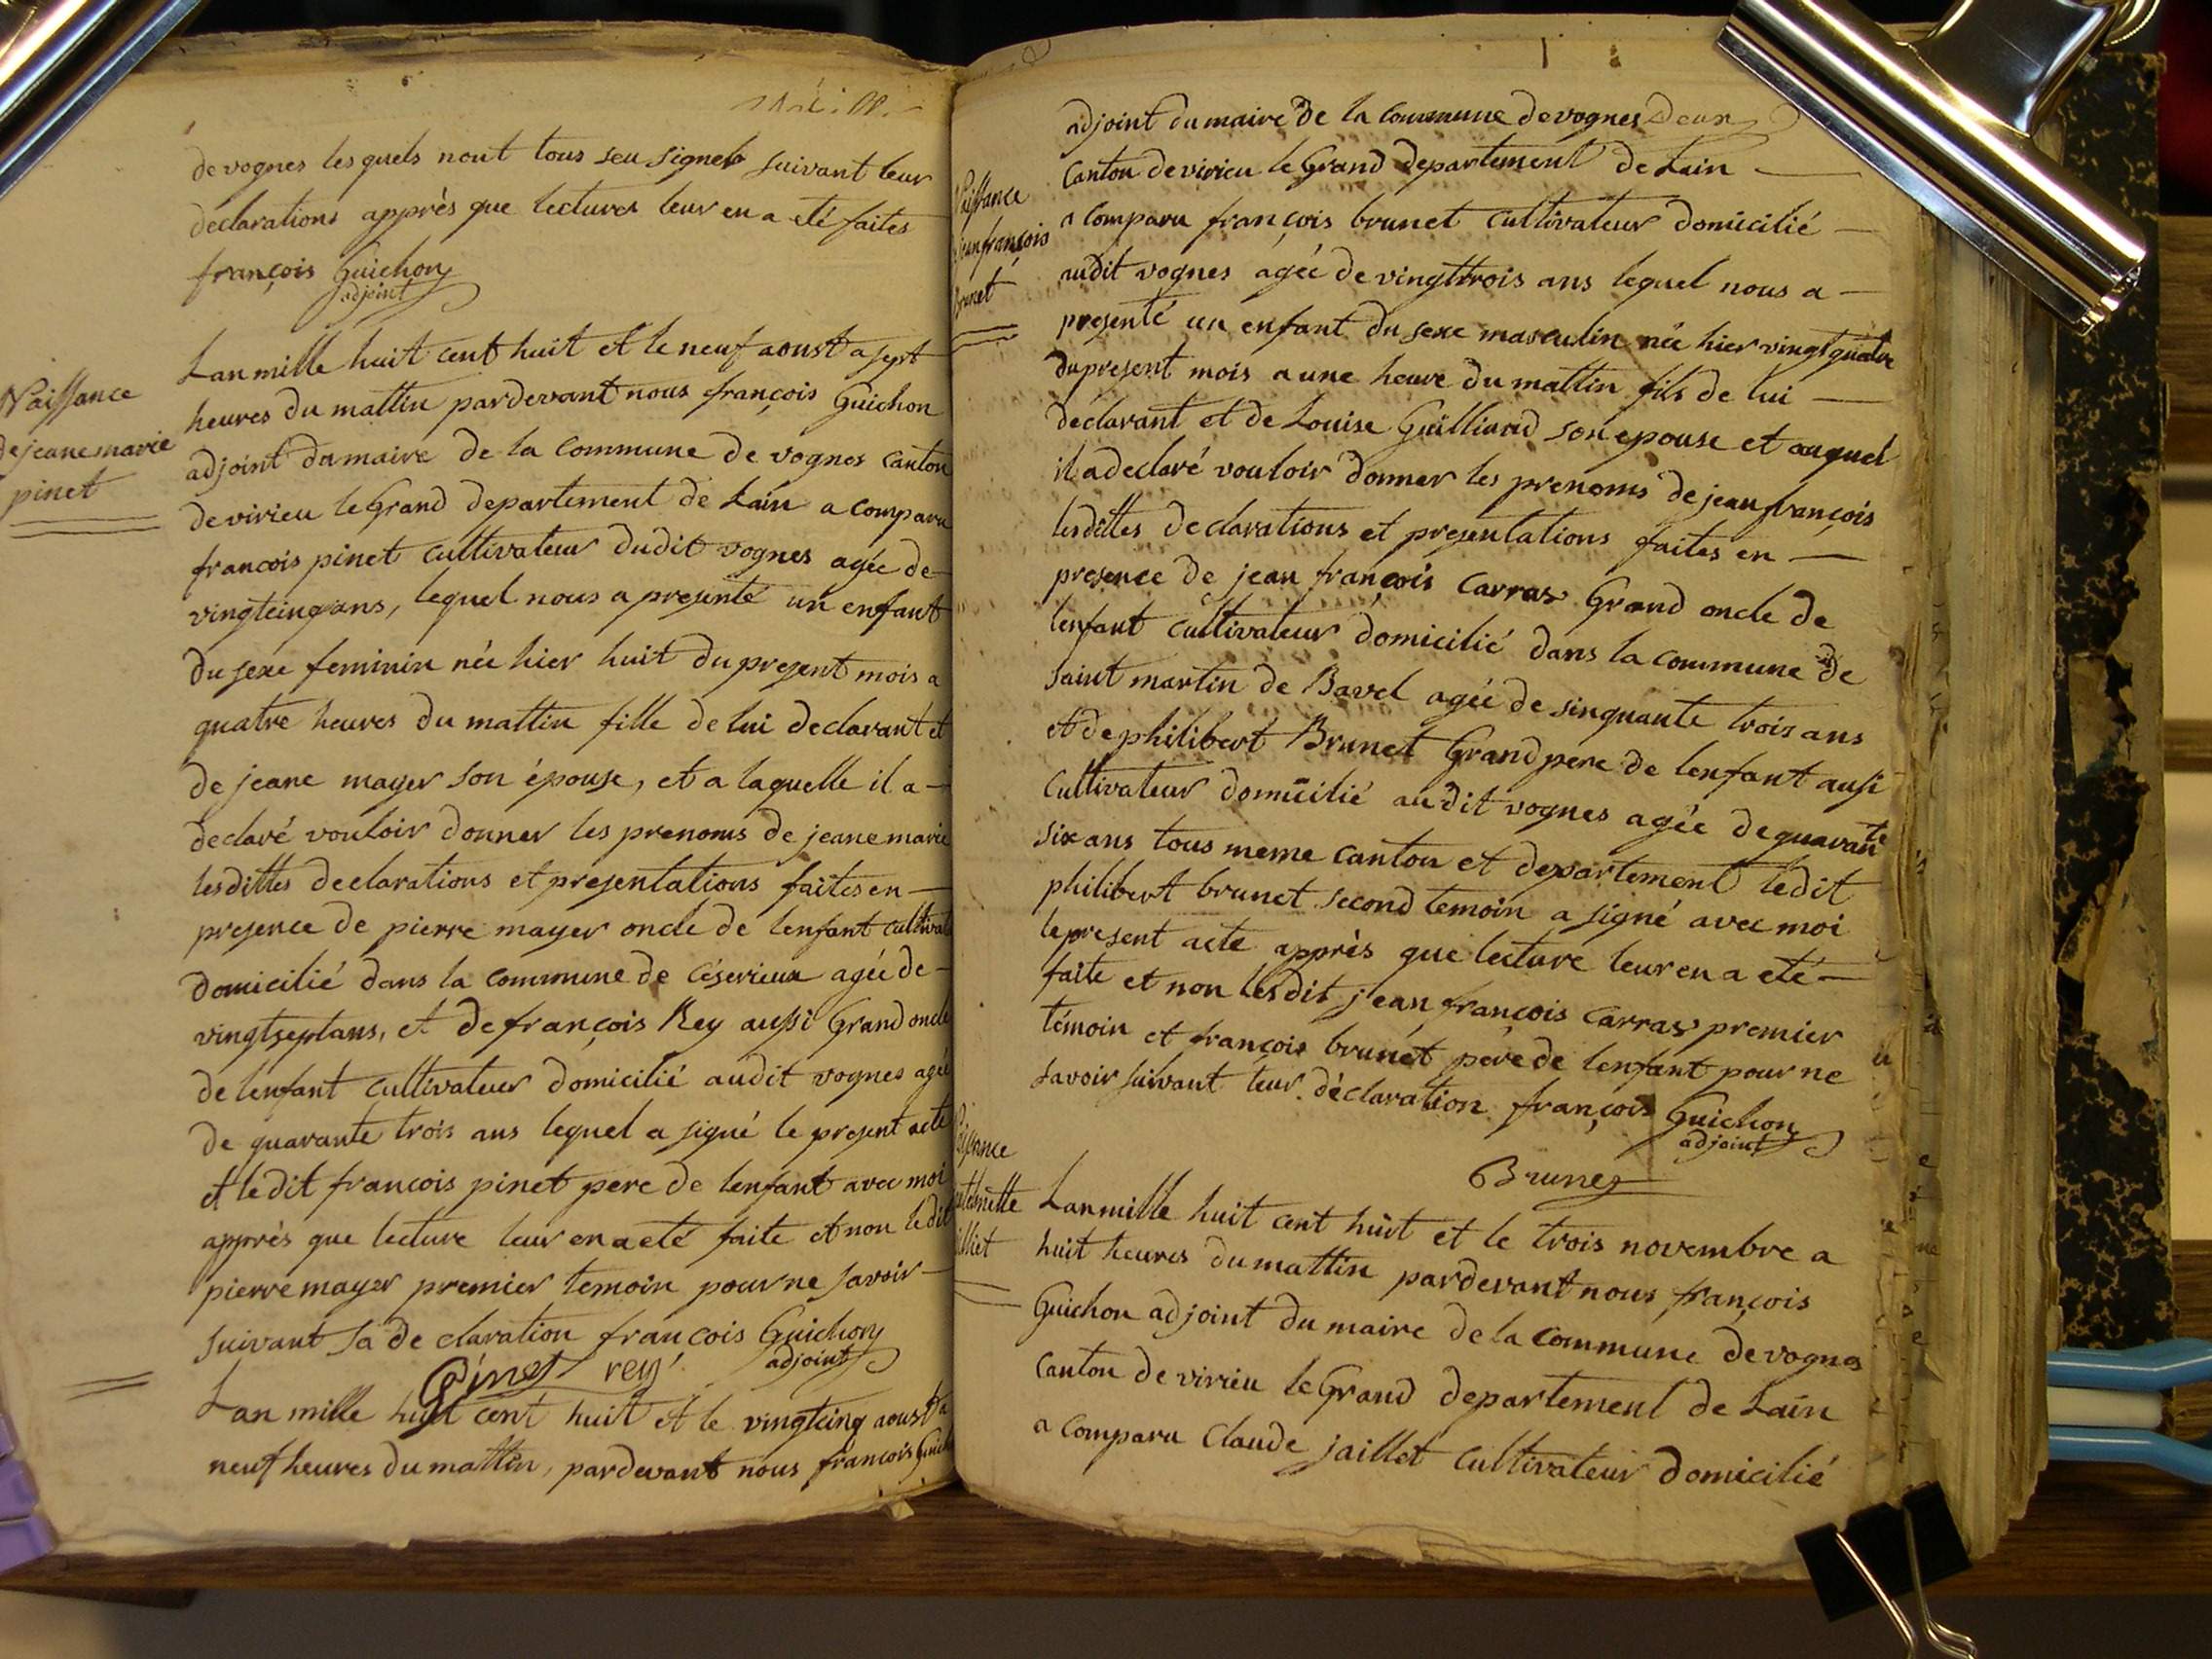 de vognes les quels nont tous seu signer suivant leur
declarations apprès que lectures leur en a eté faites
françois Guichon
adjoint
Naissance
de jeane marie
pinet
Lan mille huit cent huit et le neuf aoust a sept
heures du mattin pardevant nous françois Guichon
adjoint du maire de la commune de vognes canton
de virieu le Grand departement de Lain a comparu
francois pinet cultivateur dudit vognes agée de
vingtcinq ans, lequel nous a presenté un enfant
du sexe feminin née hier huit du present mois a
quatre heures du mattin fille de lui declarant et
de jeane mayer son épouse, et a laquelle il a
declaré vouloir donner les prenoms de jeane marie
lesdittes declarations et presentations faites en
presence de pierre mayer oncle de lenfant cultivat
domicilié dans la commune de céserieux agée de
vingtseptans, et de françois Rey aussi Grand oncle
de lenfant cultivateur domicilié audit vognes agée
de quarante trois ans lequel a signé le present acte
et ledit francois pinet pere de lenfant avec moi
apprès que lecture leur en a eté faite et non ledit
pierre mayer premier temoin pour ne savoir
suivant sa declaration francois Guichon
adjoint
Pinet rey
Lan mille huit cent huit et le vingtcinq aoust a
neuf heures du mattin, pardevant nous francois Guich
adjoint du maire de la commune de vognes
Canton de virieu le Grand departement de Lain
Naissance
jean françois
Brunet
a comparu françois brunet cultivateur domicilié
audit vognes agée de vingttrois ans lequel nous a
presenté un enfant du sexe masculin née hier vingt quatre
du present mois a une heure du mattin fils de lui
declarant et de Louise Guilliand son epouse et auquel
il a declaré vouloir donner les prenoms de jean françois
lesdittes declarations et presentations faites en
presence de jean françois Carras Grand oncle de
lenfant cultivateur domicilié dans la commune de
saint martin de Bavel agée de sinquante trois ans
et de philibert Brunet Grand pere de lenfant aussi
cultivateur domicilié audit vognes agée de quarante
six ans tous meme canton et departement ledit
philibert brunet second temoin a signé avec moi
le present acte apprès que lecture leur en a eté
faite et non lesdit jean françois Carras premier
témoin et françois brunet pere de lenfant pour ne
savoir suivant leur déclaration françois Guichon
adjoint
Brunet
Lan mille huit cent huit et le trois novembre a
huit heures du mattin pardevant nous françois
Guichon adjoint du maire de la commune de vognes
canton de virieu le Grand departement de Lain
a comparu Claude jaillet cultivateur domicilié